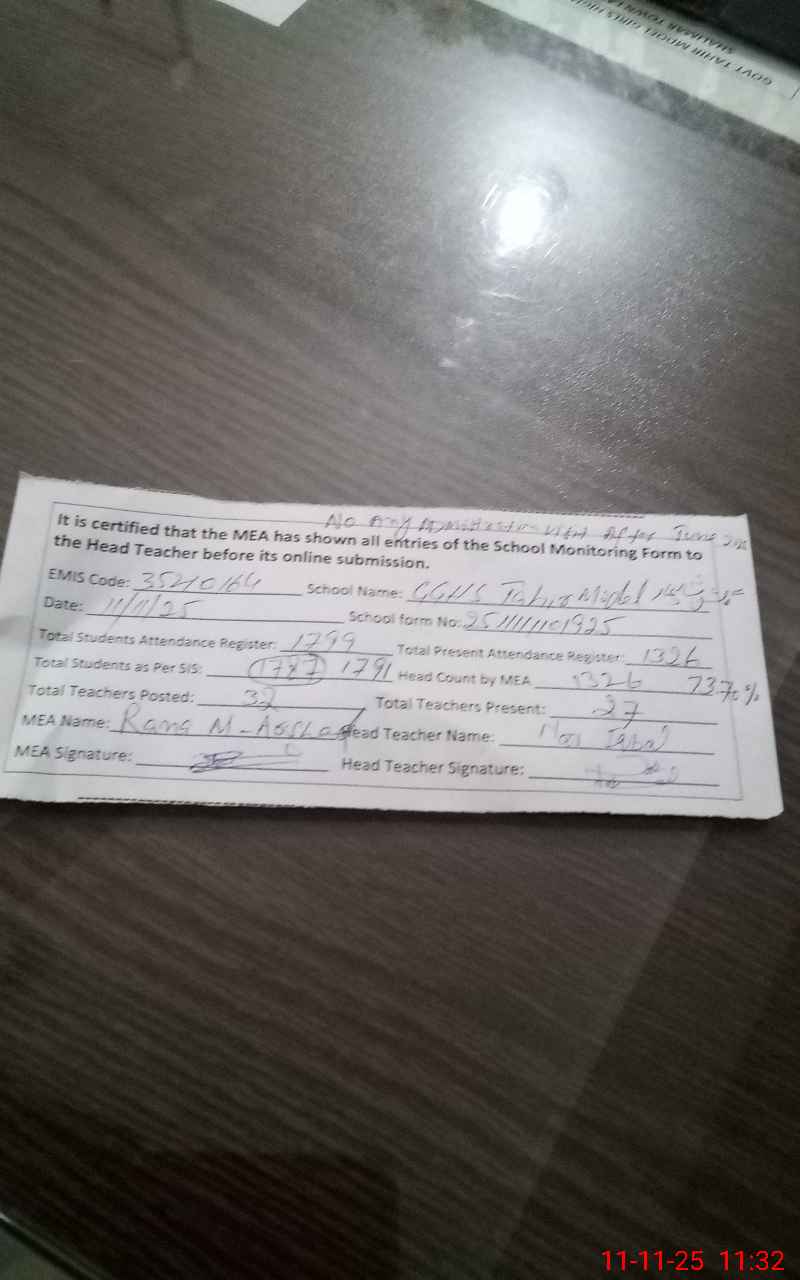 GOVT TAHIR MODEL GIRLS HIGH
SHALIMAR TOWN
No Any Administrative visit After June 2025
It is certified that the MEA has shown all entries of the School Monitoring Form to
the Head Teacher before its online submission.
EMIS Code: 35210164 School Name: GGHS Tahir Model
Date: 11/11/25 School form No: 25111111101925
Total Students Attendance Register: 1799 Total Present Attendance Register: 1326
Total Students as Per SIS: 1787 1791 Head Count by MEA 1326 73.7%
Total Teachers Posted: 32 Total Teachers Present: 27
MEA Name: Rana M-Ashfaq Head Teacher Name:
MEA Signature: Head Teacher Signature:
11-11-25 11:32